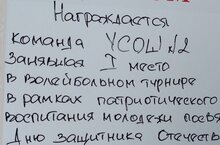 Награждается
команда УСОШ №2
Занявшая I место
в волейбольном турнире
в рамках патриотического
воспитания молодежи посвя
Дню защитника Отечеств